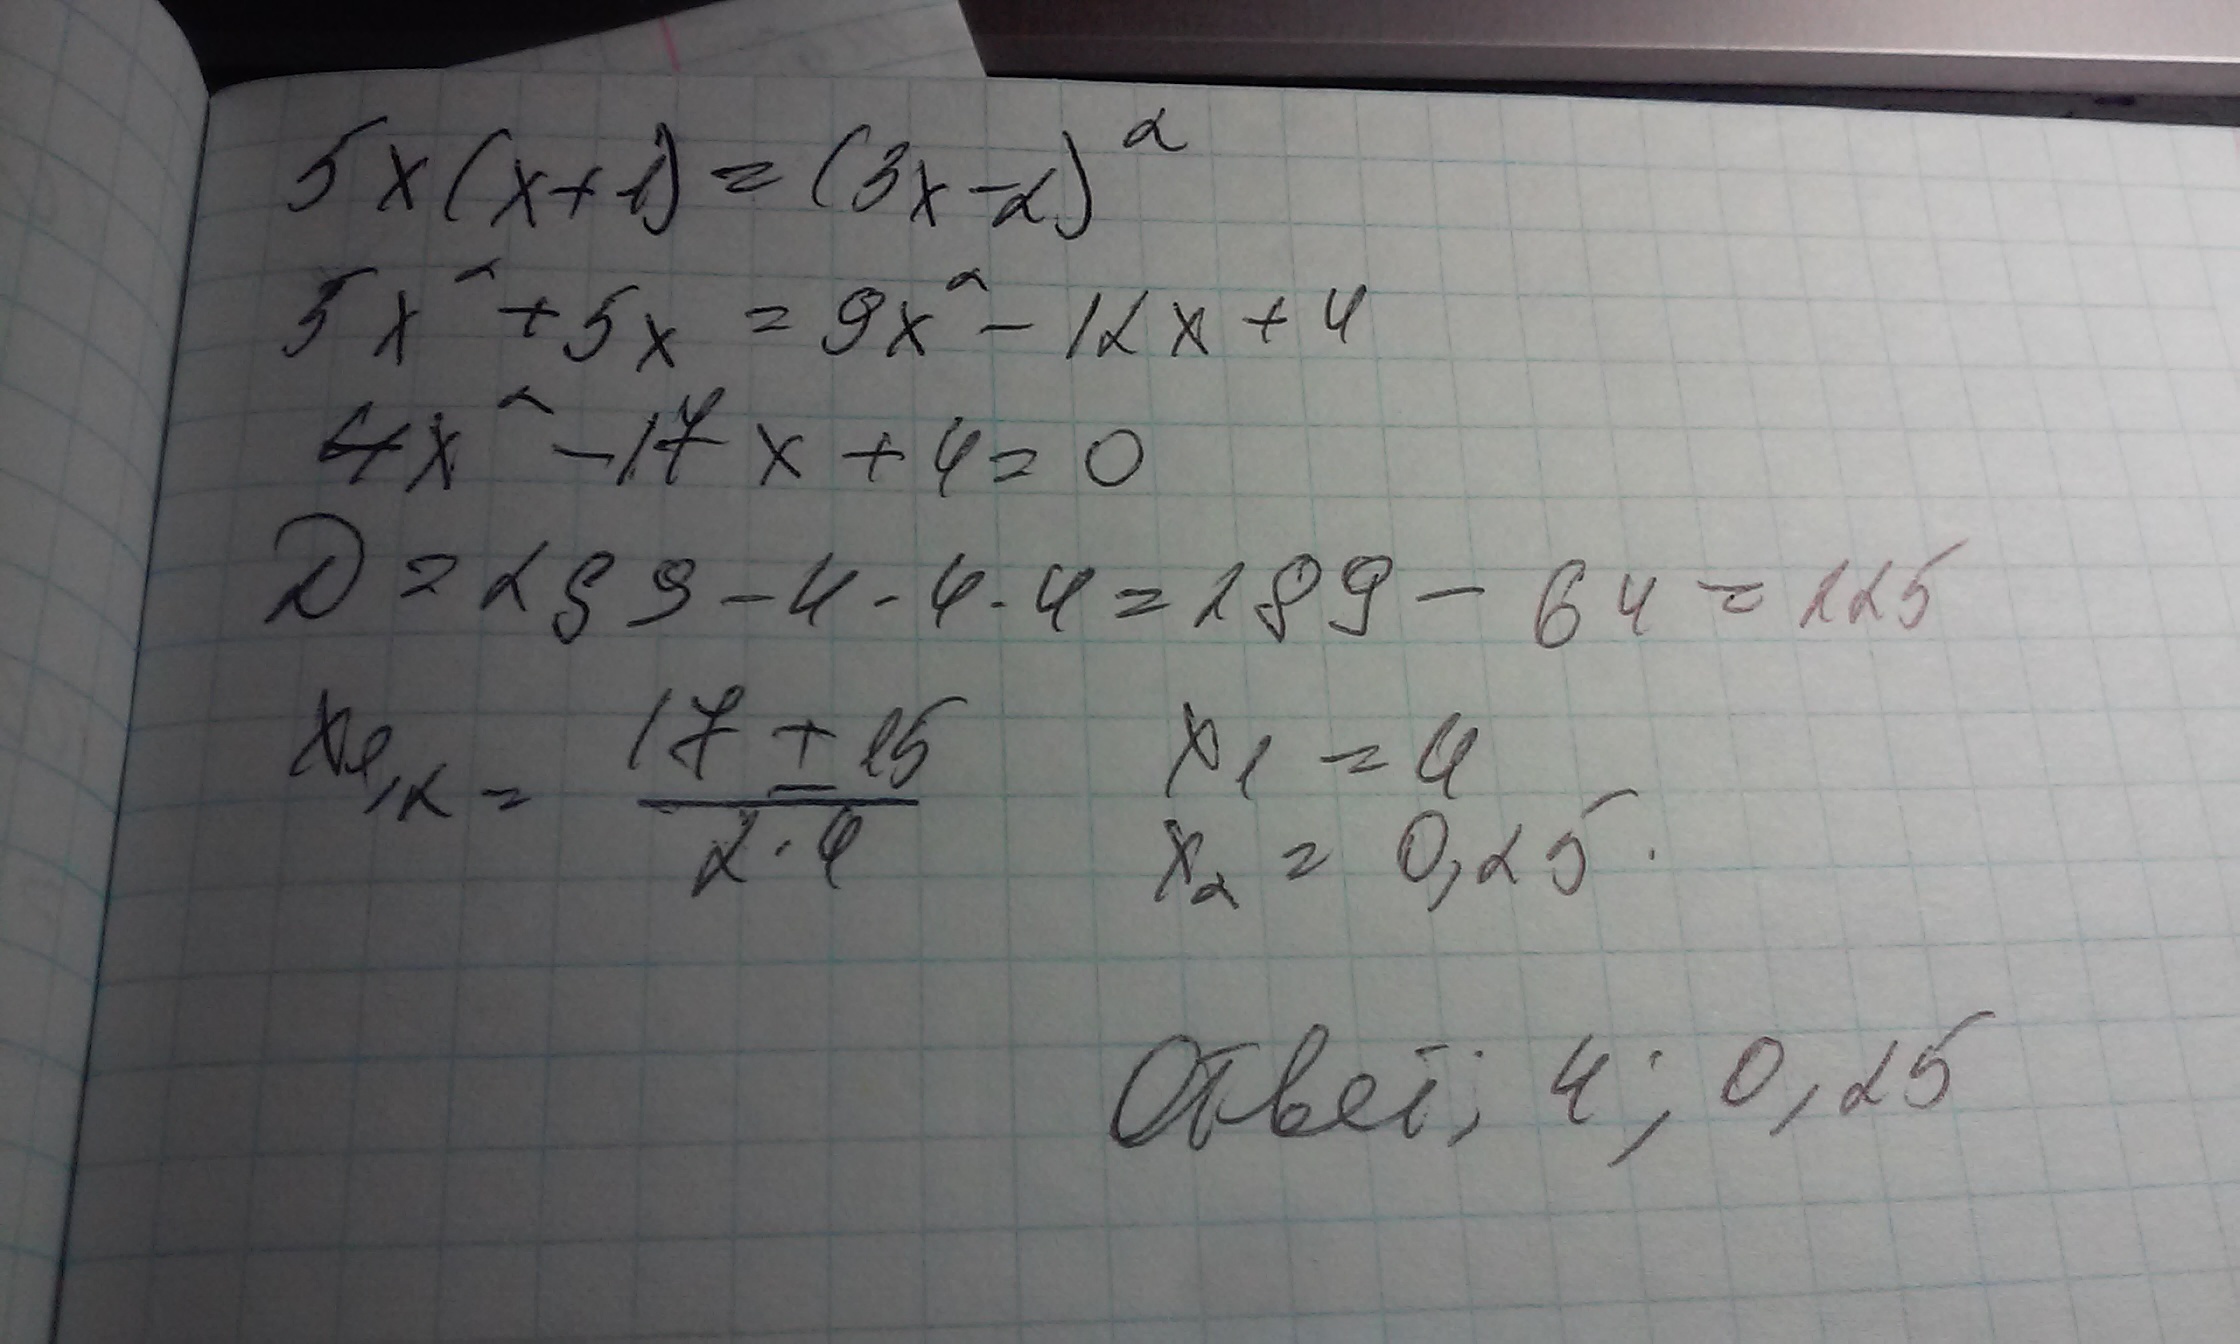 5x(x+1)=(3x-2)²
5x²+5x=9x²-12x+4
4x²-17x+4=0
D=289-4·4·4=289-64=225
x₁,₂=(17±15)/(2·4) x₁=4
x₂=0,25.
Ответ; 4; 0,25